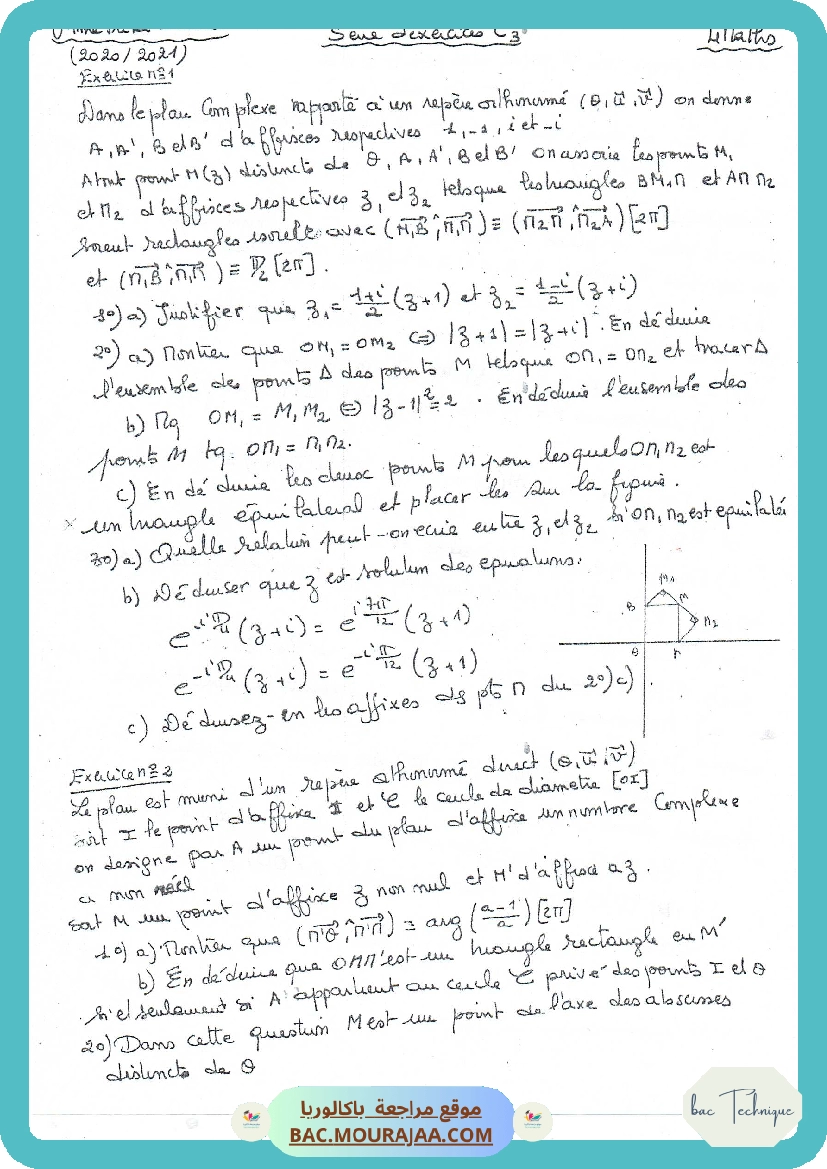 (2020/2021)
Série d'exercices C3
4 Maths
Exercice n=1
Dans le plan Complexe rapporté à un repère orthonormé (O, u, v) on donne
A, A', B et B' d'affixes respectives 1, -1, i et -i
A tout point M(z) distincts de O, A, A', B et B' on associe les points M1
et M2 d'affixes respectives z1 et z2 tels que les triangles BM1M et AMM2
soient rectangles isocèle avec (M1B ^ M1M) ≡ (M2M ^ M2A) [2π]
et (M1B ^ M1M) ≡ π/2 [2π].
1°) a) Justifier que z1 = (1+i)/2 (z+1) et z2 = (1-i)/2 (z+i)
2°) a) Montrer que OM1 = OM2 ⇔ |z+1| = |z+i|. En déduire
l'ensemble des points Δ des points M tels que OM1 = OM2 et tracer Δ
b) Mq OM1 = M1M2 ⇔ |z-1|² = 2. En déduire l'ensemble des
points M tq. OM1 = M1M2.
c) En déduire les deux points M pour lesquels OM1M2 est
un triangle équilatéral et placer les sur la figure.
3°) a) Quelle relation peut-on ecrire entre z1 et z2 si OM1M2 est equilatéral
b) Déduiser que z est solution des equations:
e^(-iπ/4) (z+i) = e^(i7π/12) (z+1)
e^(-iπ/4) (z+i) = e^(-iπ/12) (z+1)
c) Déduisez-en les affixes ds pts M du 2°) c)
B
M1
M
M2
O
A
Exercice n=2
Le plan est muni d'un repère othonormé direct (O, u, v)
soit I le point d'affixe 1 et C le cercle de diametre [OI]
on designe par A un point du plan d'affixe un nombre Complexe
a non réel
soit M un point d'affixe z non nul et M' d'affixe az.
1°) a) Montrer que (M'O ^ M'M) = arg ((a-1)/a) [2π]
b) En déduire que OMM' est un triangle rectangle en M'
si et seulement si A appartient au cercle C privé des points I et O
2°) Dans cette question M est un point de l'axe des abscisses
distincts de O
bac Technique
موقع مراجعة باكالوريا
BAC.MOURAJAA.COM